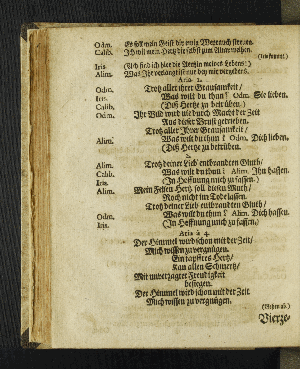 Odm. Es soll mein Geist dir ewig Weyrauch streuen.
Calib. Ich will mein Hertz dir selbst zum Altar weihen.
(Sie kommt.)
Iris. (Und sind ich hier die Aertzin meines Lebens?)
Alim. Was Ihr verlangt ist nur bey mir vergebens.
Aria. 1.
Odm. Trotz aller ihrer Grausamkeit/
Iris. Was wilt du thun? Odm. Sie lieben.
Calib. (Diß Hertze zu betrüben.)
Odm. Ihr Bild wird nie durch Macht der Zeit
Aus dieser Brust getrieben.
Trotz aller Ihrer Grausamkeit/
Alim. Was wilt du thun? Odm. Dich lieben.
(Diß Hertze zu betrüben.
2.
Alim. Trotz deiner Lieb entbrandten Gluth/
Calib. Was wilt du thun? Alim. Ihn hassen.
Iris. (In Hoffnung mich zu fassen.)
Alim. Mein Felsen Hertz soll diesen Muth/
Noch nicht im Tode lassen.
Trotz deiner Lieb entbrandten Gluth/
Odm. Was wilt du thun? Alim. Dich hassen.
Iris. (In Hoffnung mich zu fassen.)
Aria à 4.
Der Himmel wird schon mit der Zeit/
Mich wissen zu vergnügen.
Ein tapffres Hertz/
Kan allen Schmertz/
Mit unverzagter Freudigkeit
besiegen.
Der Himmel wird schon mit der Zeit
Mich wissen zu vergnügen.
(Gehen ab.)
Vierze-